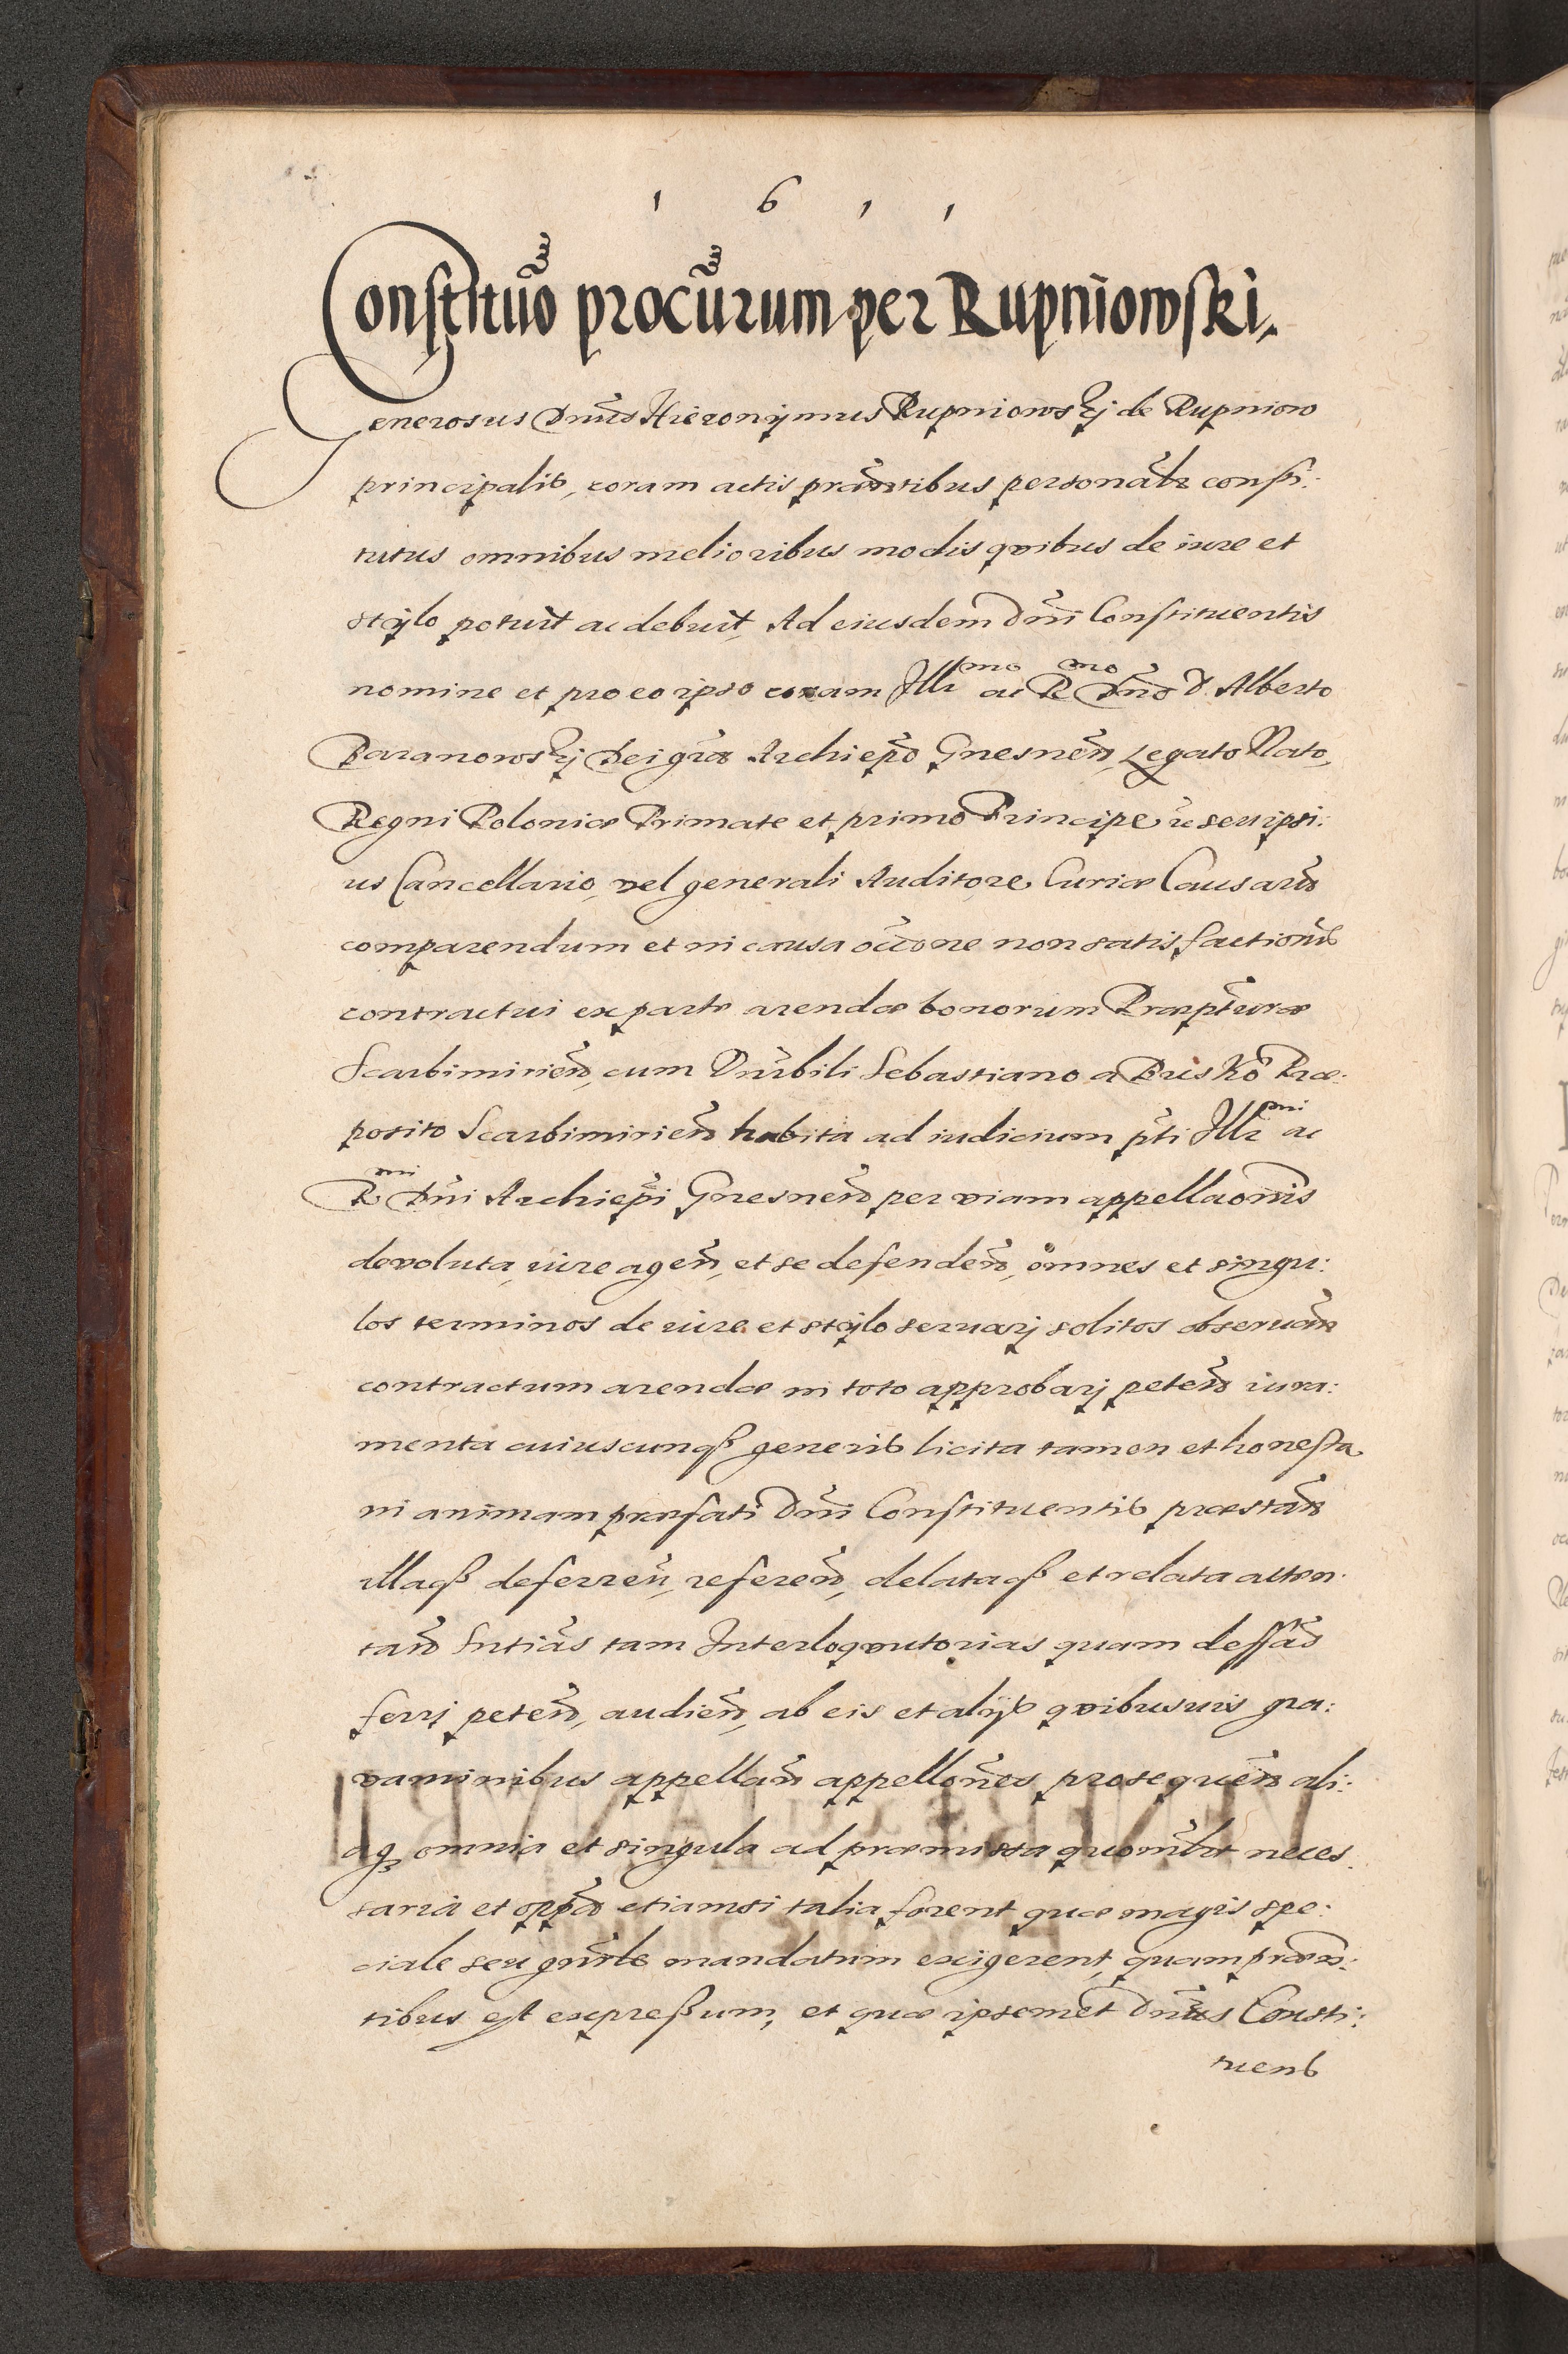 1 6 1 1
Constituo procurum per Rupniowski.
Generosus Dnus Hieronymus Rupniowskj de Rupniow
principalis, coram actis praesentibus personalr consti:
tutus omnibus melioribus modis quibus de iure et
stylo potuit ac debuit, Ad eiusdem Dni Constituentis
nomine et pro eo ipso coram Illmo ac Rmo Dno D. Alberto
Baranowskj Dei gra Archiepo Gnesnen, Legato Nato,
Regni Poloniae Primate et primo Principe etc seu ipsi:
us Cancellario, vel generali Auditore Curiae Causarum
comparendum et in causa occone non satisfactionis
contractui ex parte arendae bonorum Praepturae
Scarbimirien, cum Vnrbili Sebastiano a Busko Prae:
posito Scarbimirien habita ad iudicium pti Illmi ac
Rmi Dni Archiepi Gnesnen per viam appellaonis
devoluta, iure agen, et se defenden, omnes et singu:
los terminos de iure et stylo seruarj solitos obseruan
contractum arendae in toto approbarj peten iura:
menta cuiuscunq generis licita tamen et honesta
in animam praefati Dni Constituentis praestan
illaq deferren, referen, delataq et relata accep
tan Sntias tam Interloqutorias quam deffas
ferrj peten, audien, ab eis et alijs quibusuis gra:
vaminibus appellan appellones prosequen ali:
aq omnia et singula ad praemissa quomlbt neces
saria et oppa etiamsi talia forent quae magis spe:
ciale seu gnrle mandatum exigerent, quam praesn:
tibus est expreßum, et quae ipsemet Dnus Consti:
tuens